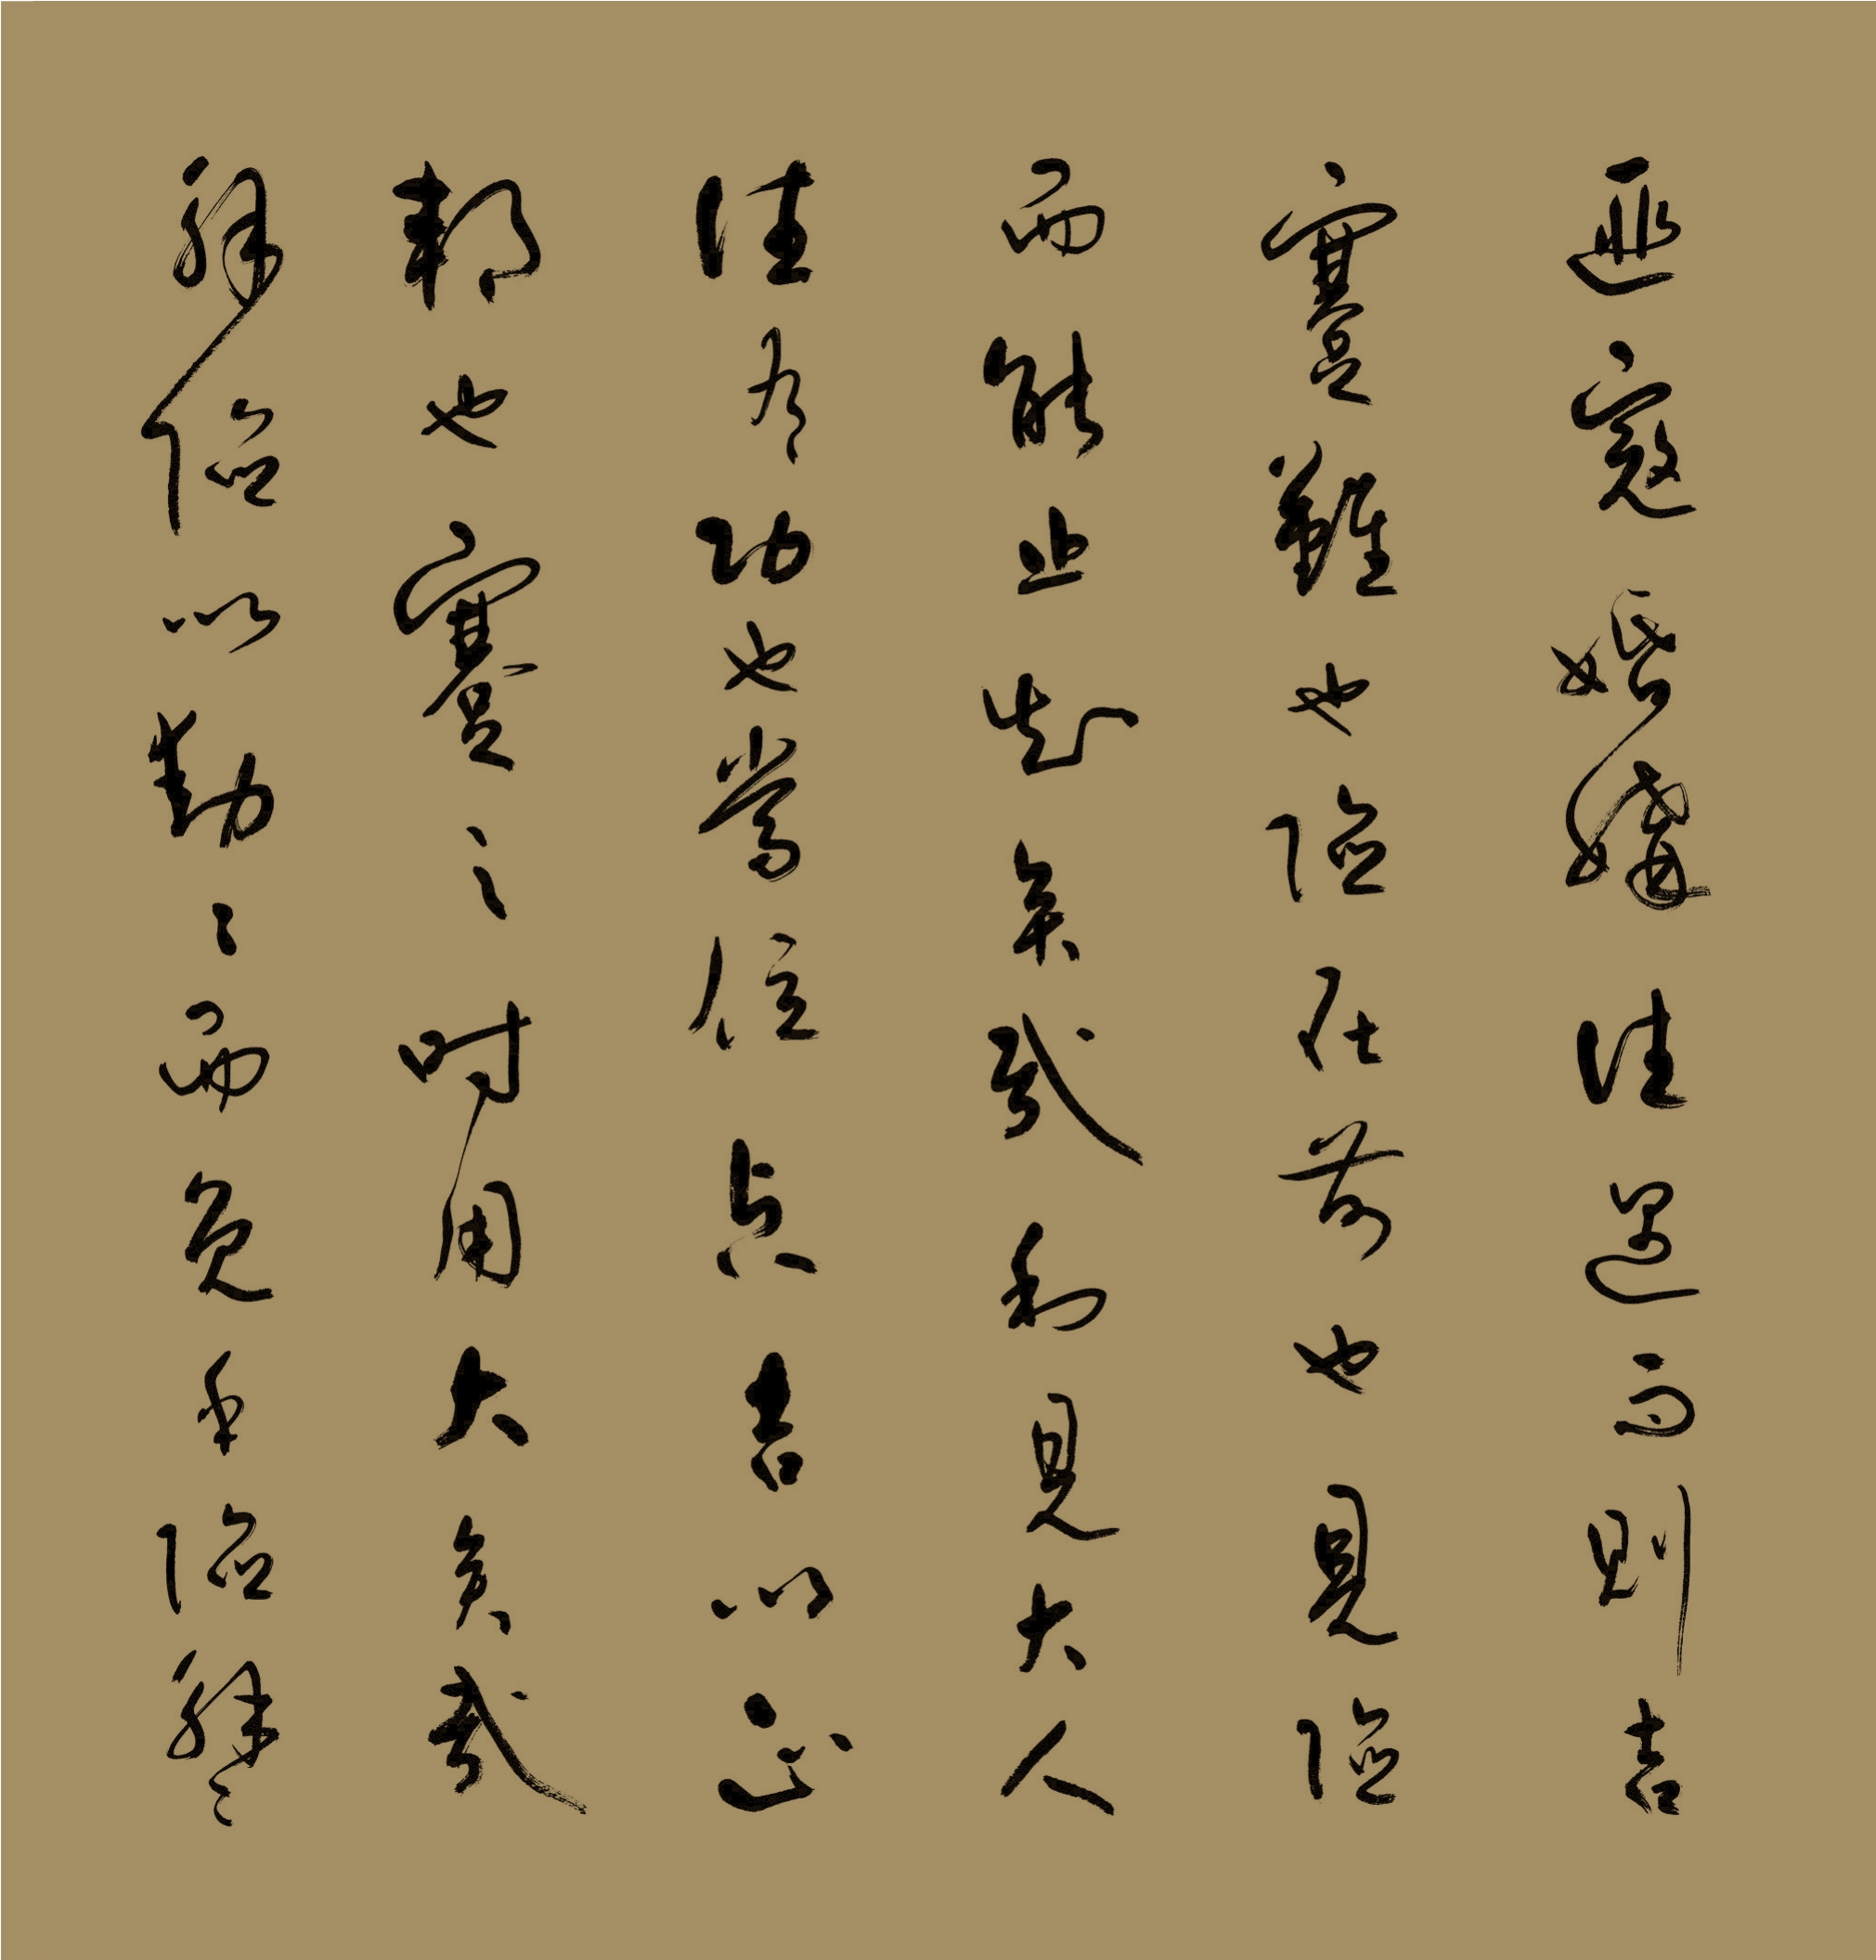 匪寇婚媾往遇雨則吉
蹇難也險在前也見險
而能止知矣哉利見大人
往有功也當位貞吉以正
邦也蹇之時用大矣哉
解險以動〻而免乎險解